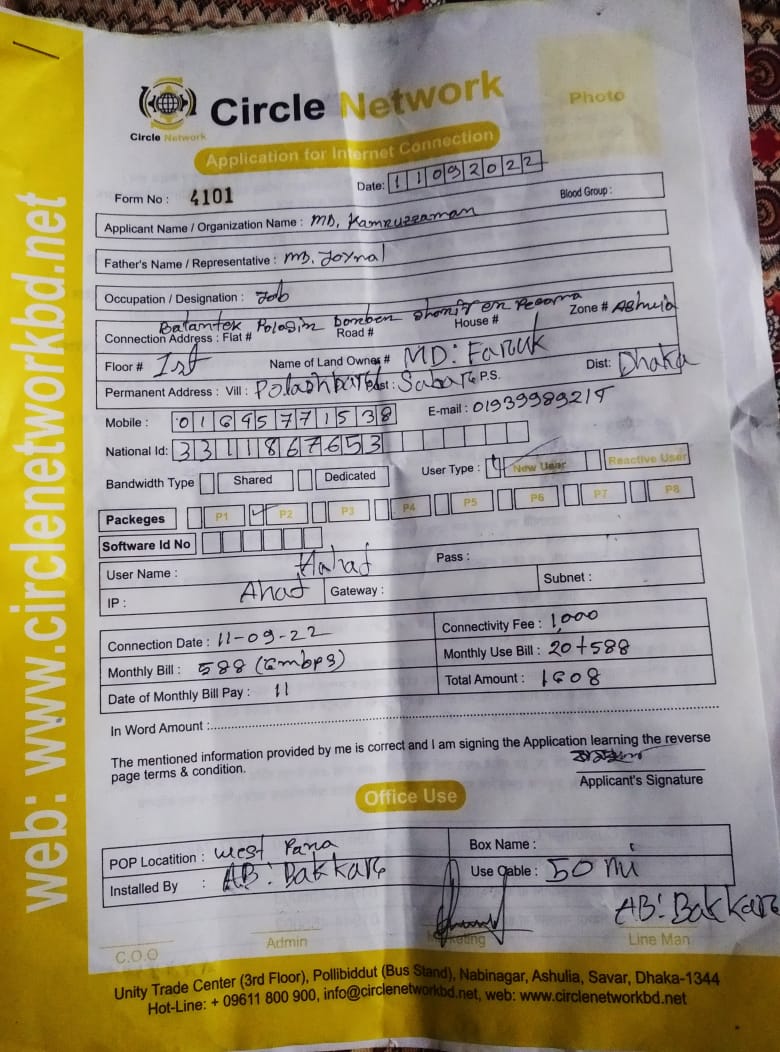 web: www.circlenetworkbd.net
Circle Network
Circle Network
Photo
Application for Internet Connection
Form No : 4101
Date: 11092022
Blood Group :
Applicant Name / Organization Name : MD. Kamruzzaman
Father's Name / Representative : MD. Joynal
Occupation / Designation : Job
Connection Address : Flat # Road # House # Zone # Ashulia
Floor # 1st Name of Land Owner # MD: Faruk
Permanent Address : Vill : Polashbari P.S. Dist: Dhaka
Mobile : 01695771538 E-mail : 01939989215
National Id: 3311867653
Bandwidth Type Shared Dedicated User Type : New User Reactive User
Packeges P1 P2 P3 P4 P5 P6 P7 P8
Software Id No
User Name : Hahad Pass :
IP : Ahad Gateway : Subnet :
Connection Date : 11-09-22 Connectivity Fee : 1,000
Monthly Bill : 588 (5mbps) Monthly Use Bill : 20+588
Date of Monthly Bill Pay : 11 Total Amount : 1608
In Word Amount :
The mentioned information provided by me is correct and I am signing the Application learning the reverse
page terms & condition.
Applicant's Signature
Office Use
POP Locatition : west Para Box Name :
Installed By : AB: Bakkare Use Cable : 50 mi
AB: Bakkare
C.O.O Admin Marketing Line Man
Unity Trade Center (3rd Floor), Pollibiddut (Bus Stand), Nabinagar, Ashulia, Savar, Dhaka-1344
Hot-Line: + 09611 800 900, info@circlenetworkbd.net, web: www.circlenetworkbd.net